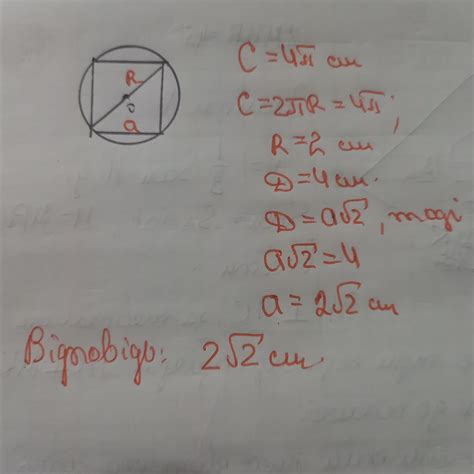 R
O
a
C = 4π см
C = 2πR = 4π,
R = 2 см
D = 4 см.
D = a√2, тоді
a√2 = 4
a = 2√2 см
Відповідь: 2√2 см.